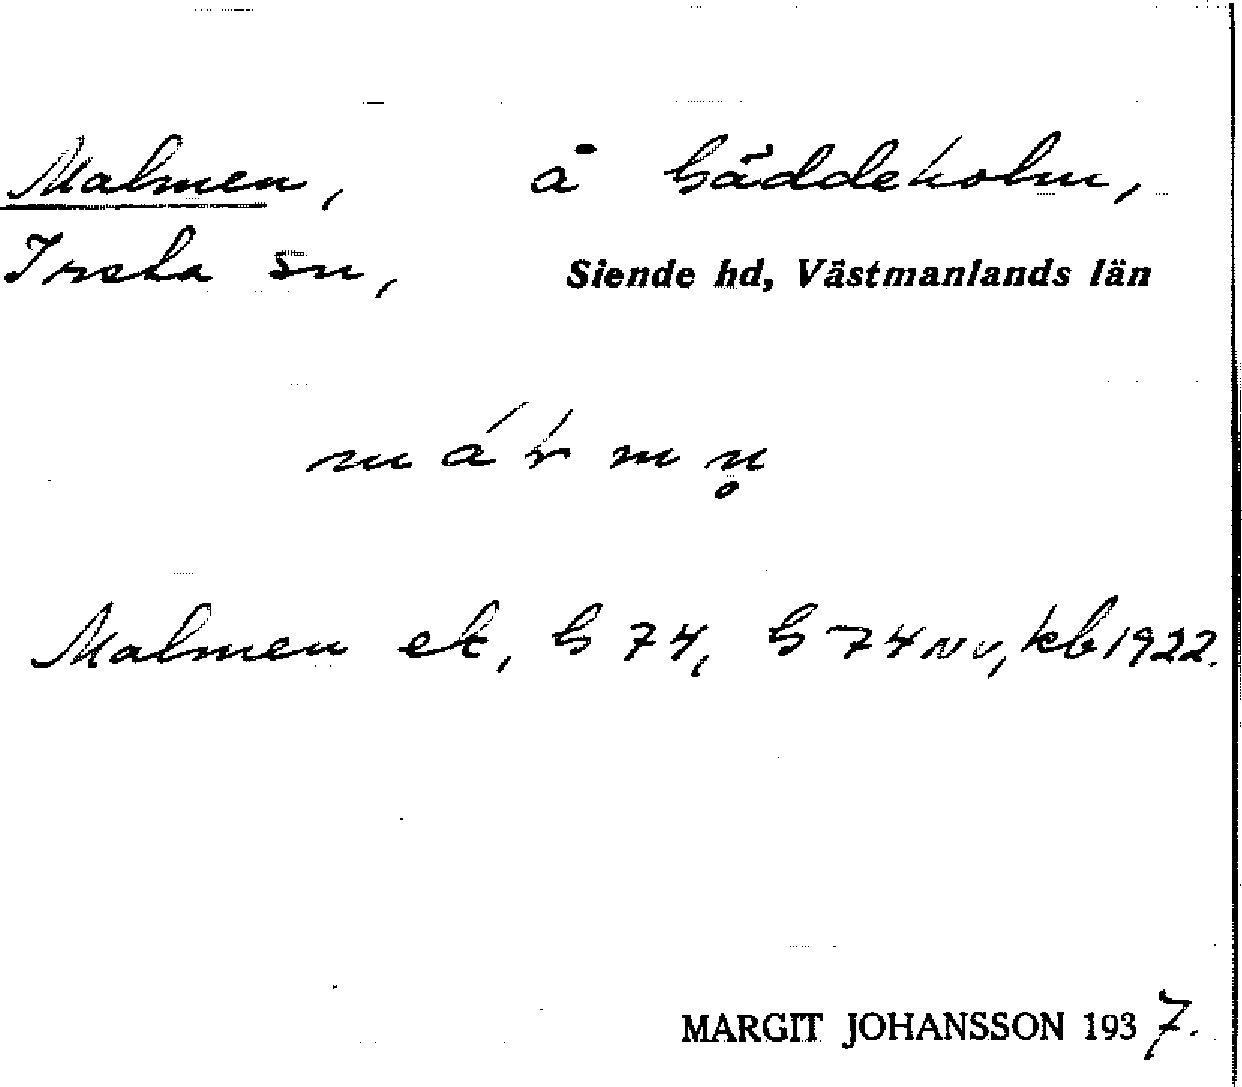 Malmen, å Gäddeholm,
Irsta sn, Siende hd, Västmanlands län
ma´r´mn̥
Malmen ek, G 74, G 74 NV, kb 1922.
MARGIT JOHANSSON 1937.